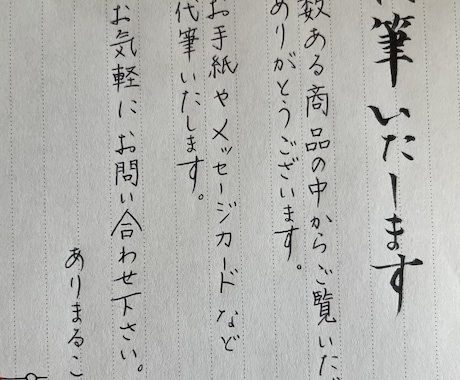 筆いたします
数ある商品の中からご覧いただ
ありがとうございます。
お手紙やメッセージカードなど
代筆いたします。
お気軽にお問い合わせ下さい。
ありまるこ